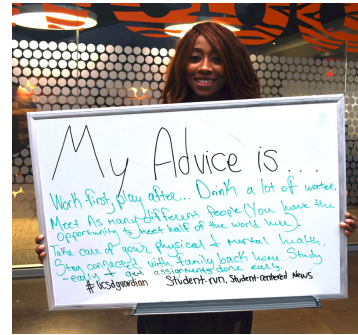 My Advice is...
Work first, play after... Drink a lot of water.
Meet As many different People (You have the
opportunity to meet half of the world here).
Take care of your physical + mental health.
Stay connected with family back home. Study
-early + get assignments done early.
#ucsdguardian Student-run, Student-centered News